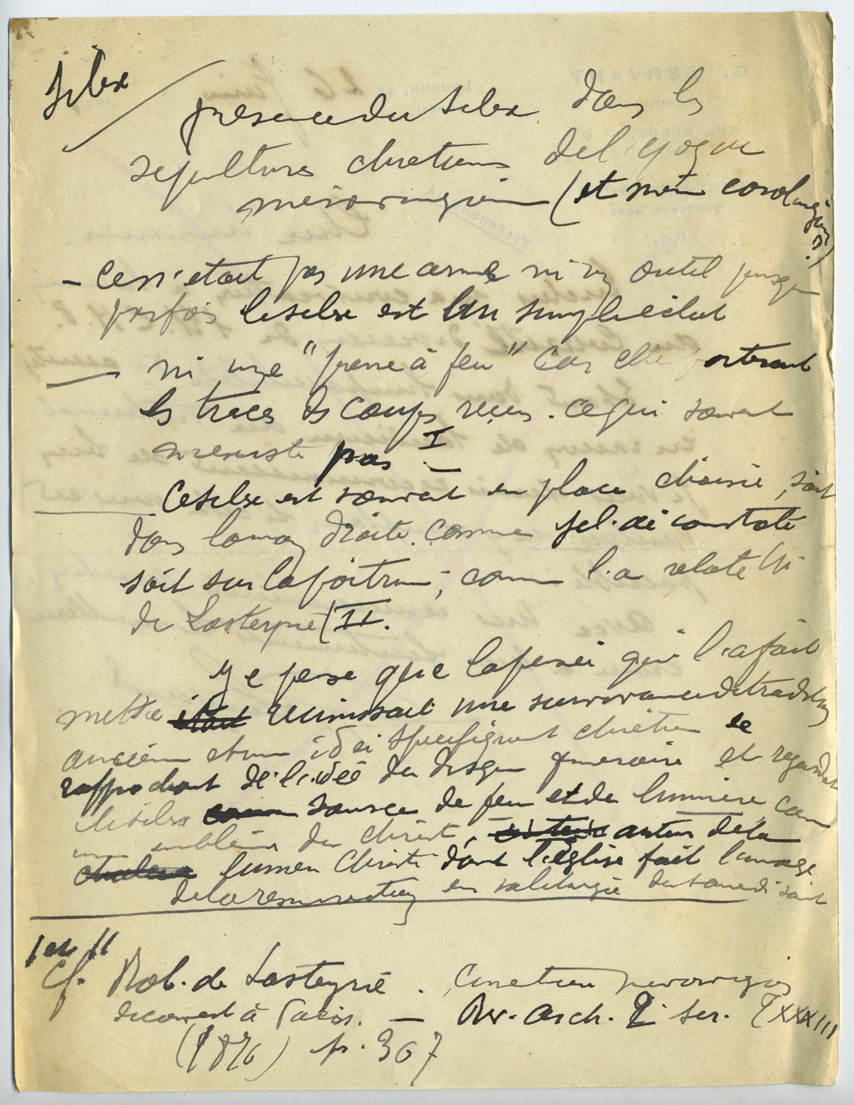 silex
présence du silex dans les
sépultures chrétiennes de l'époque
mérovingienne (et même carolingienne?)
– ce n'était pas une arme ni un outil puisque
parfois le silex est un simple éclat
— ni une "pierre à feu" car elle porterait
les traces des coups reçus. ce qui souvent
n'existe pas I
— Ce silex est souvent en place choisie, soit
dans la main droite comme je l'ai constaté
soit sur la poitrine, comme l'a relaté
de Lasteyrie (II.
Je pense que la pensée qui l'a fait
mettre était réunissait une survivance de tradition
ancienne et une idée spécifiquement chrétienne se
rapprochant de l'idée du disque funéraire et regardant
le silex comme source de feu et de lumière, comme
un emblème du Christ, auteur de la
chaleur lumen Christi dont l'église fait l'image
de la résurrection en sa liturgie du samedi saint
I et II
Cf. Rob. de Lasteyrie. Cimetière mérovingien
découvert à Paris. — Rev. Arch. 2e ser. TXXXIII
(1876) p. 367